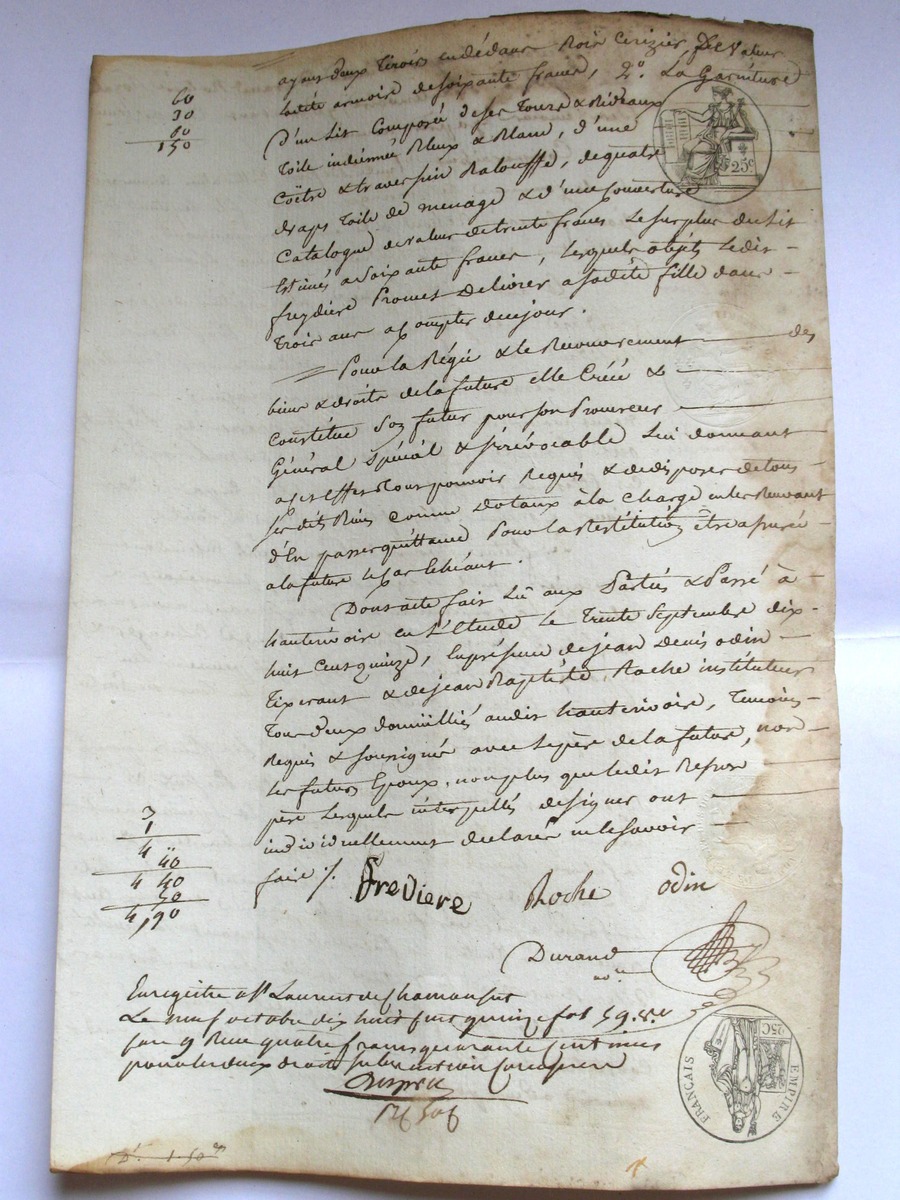 ayant deux tiroirs en dedans Bois Cerizier, De Valeur
Ladite armoire de soixante francs, 2º. La Garniture
D'un Lit Composé de ses Tours & Rideaux
Toile indienne Bleux & Blanc, d'une
Coëtre & traversin Balouffe, de quatre
draps Toile de menage & d'une Couverture
Catalogne de valeur de trente francs Le surplus du Lit
Estimés a Soixante francs, Lesquels objets Ledit
freydiere Promet Delivrer a sadite fille dans
Trois ans a Compter de ce jour.
Pour la Régie & le Recouvrement des
biens & droits de la future elle Créé &
Constitue Son futur pour son Procureur
Général Spécial & irrévocable Lui donnant
a cet Effet Tout pouvoir Requis & de disposer de tous
sesdits Biens comme Dotaux à la Charge
d'En passer quittance Pour la Restitution Être assurée
a la future le Cas Echéant.
Dont acte fait Lû aux Parties & Passé à
hauterivoire en L'Etude Le Trente Septembre dix
huit Cent quinze, En présence de jean Denis odin
Tixerant & de jean Baptiste Roche instituteur
Tous deux domicilliés audit hauterivoire, Temoins
Requis & soussignés avec Le père de la future, non
Les futurs Epoux, non plus que ledit
père Lesquels interpellés de signer ont
individuellement declaré ne le Savoir
faire ./.
60
30
60
150
25c
3
1
4
40
4 40
50
4,90
freviere Roche odin
Durand
nore
Enregistré a St. Laurent de Chamousset
Le neuf octobre dix huit cent quinze fol 59
Reçu quatre francs quarante Centimes
EMPIRE FRANÇAIS
25C